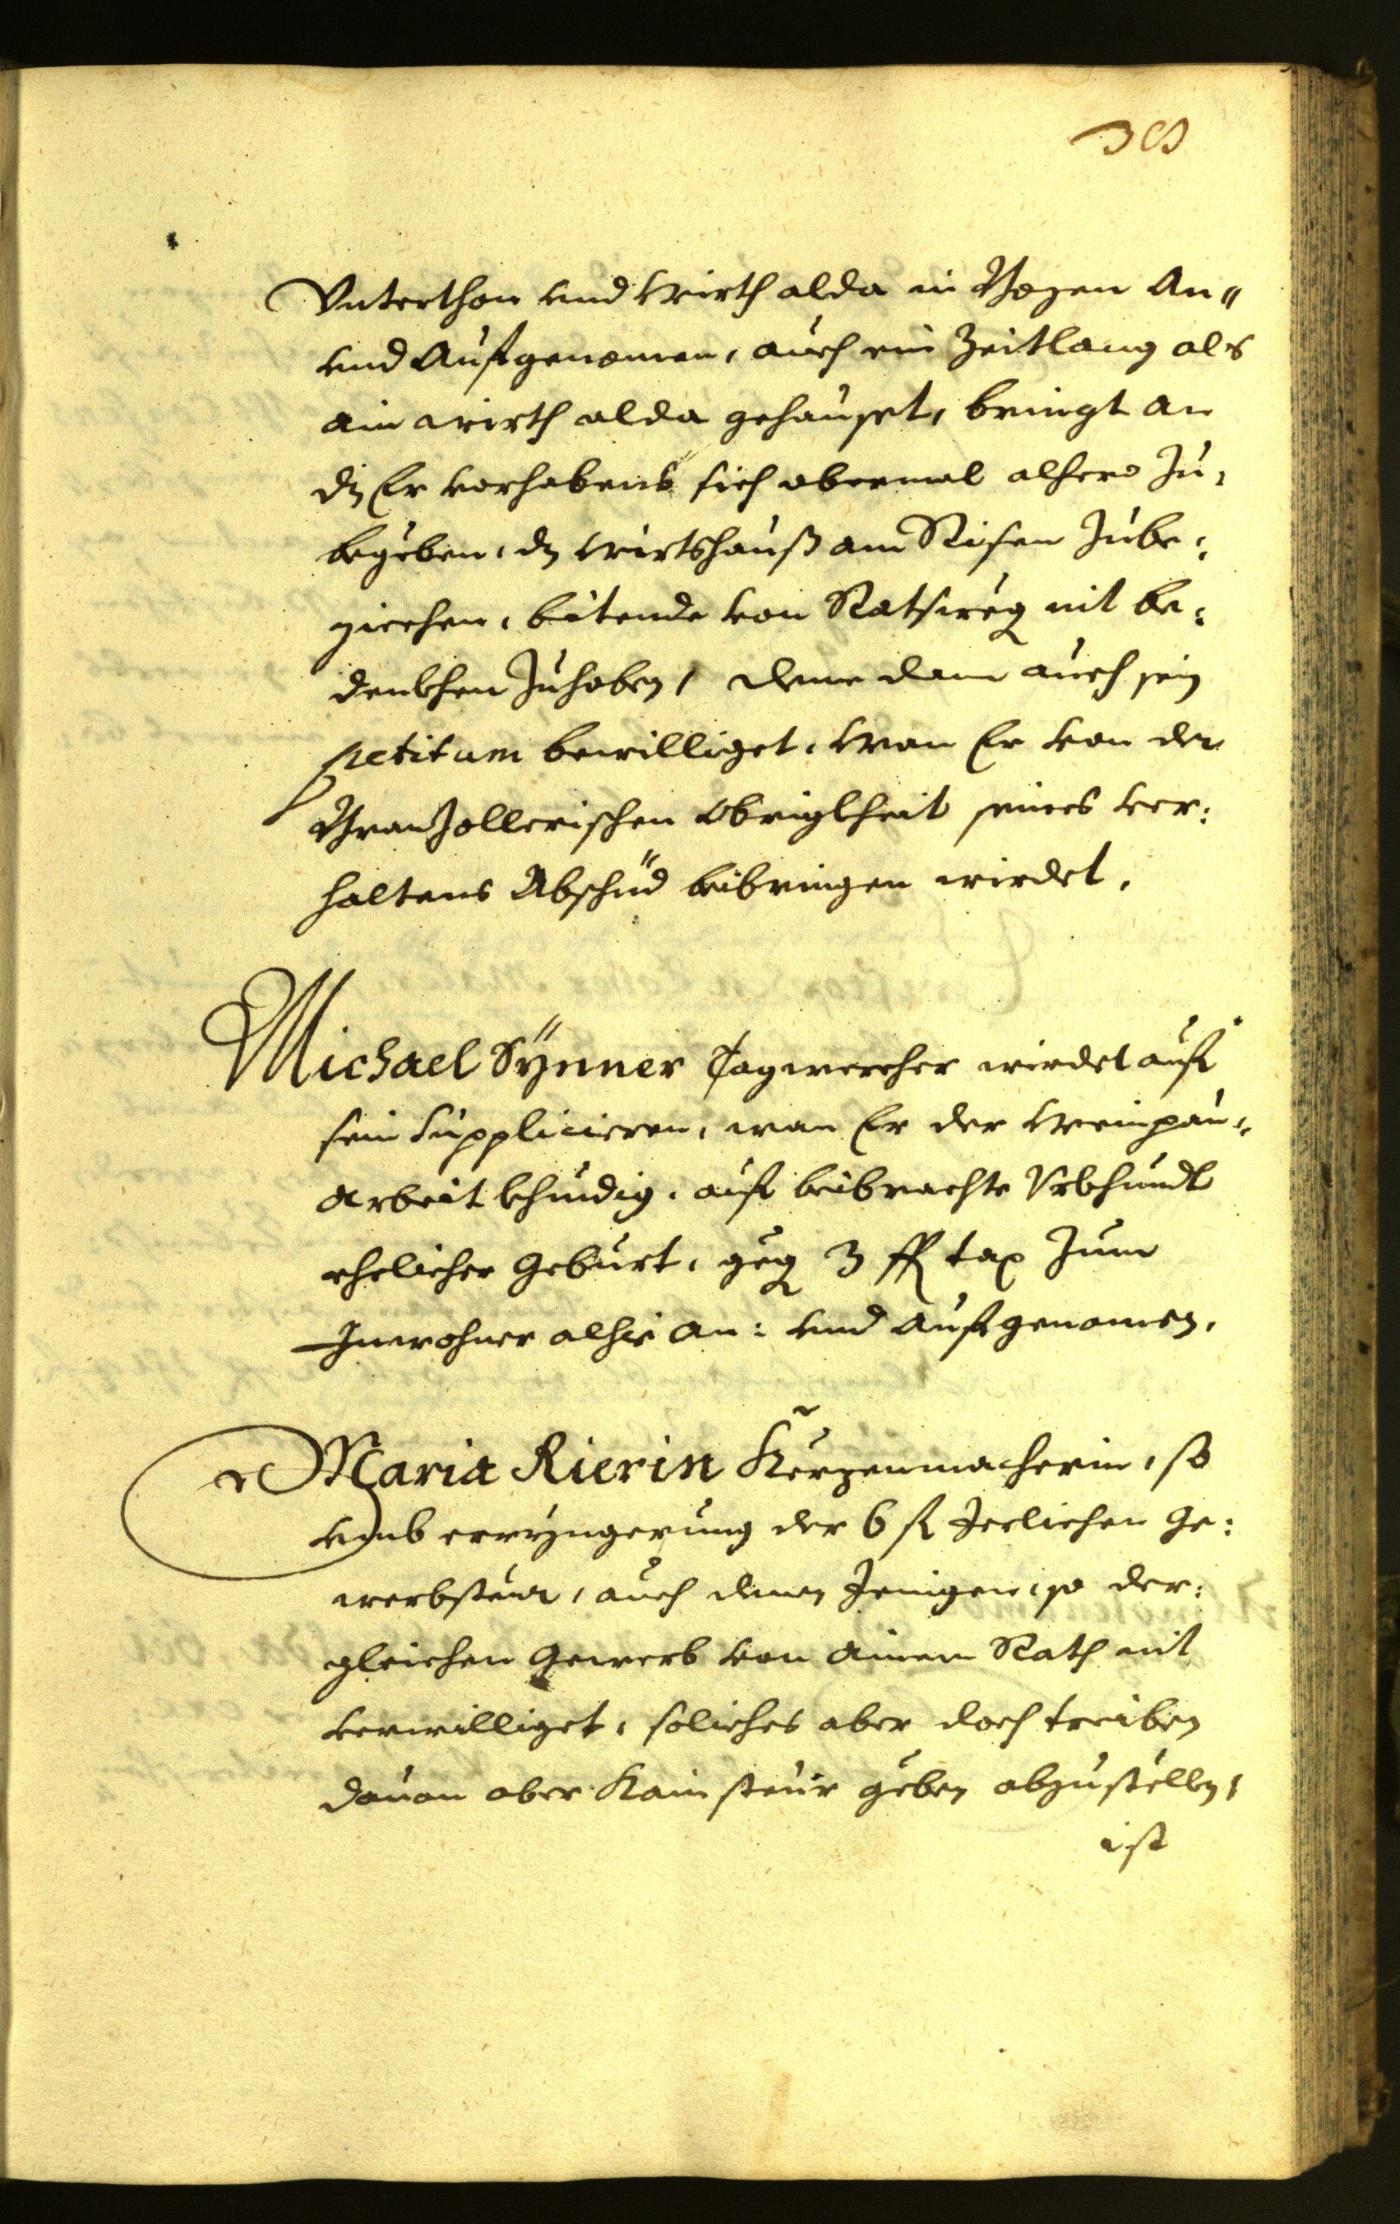 38
Vnterthon vnd Wirth alda in Bozen An„
vnd Aufgenomen, auch ein Zeitlang als
ain wirth alda gehauset, bringt an
dz Er vorhabens sich abermal alhero zu,
begeben, dz wirtshauß am Risen zube:
ziechen, bitende von Ratsweg nit be:
denkhen zuhaben, deme dann auch sein
petitum bewilliget, wan Er von der
Branzollerischen Obrigkheit seines ver:
haltens Abschid beibringen wirdet.
Michael Sÿnner Tagwercher wirdet auf
sein Supplicieren, wan Er der Weinpau:
Arbeit khindig, auf beibrachte Vrkhundt
ehelicher Geburt, geg 3 fl tax zum
Inwohner alhie an: vnd aufgenomen.
Maria Rierin Kerzenmacherin, so
vmb erryngerung der 6 fl Jerlichen Ge:
werbsteur, auch denen Jenigen, so der:
gleichen Gewerb von ainem Rath nit
verwilliget, soliches aber doch treiben
dauon aber Kain steur geben abzustellen,
ist